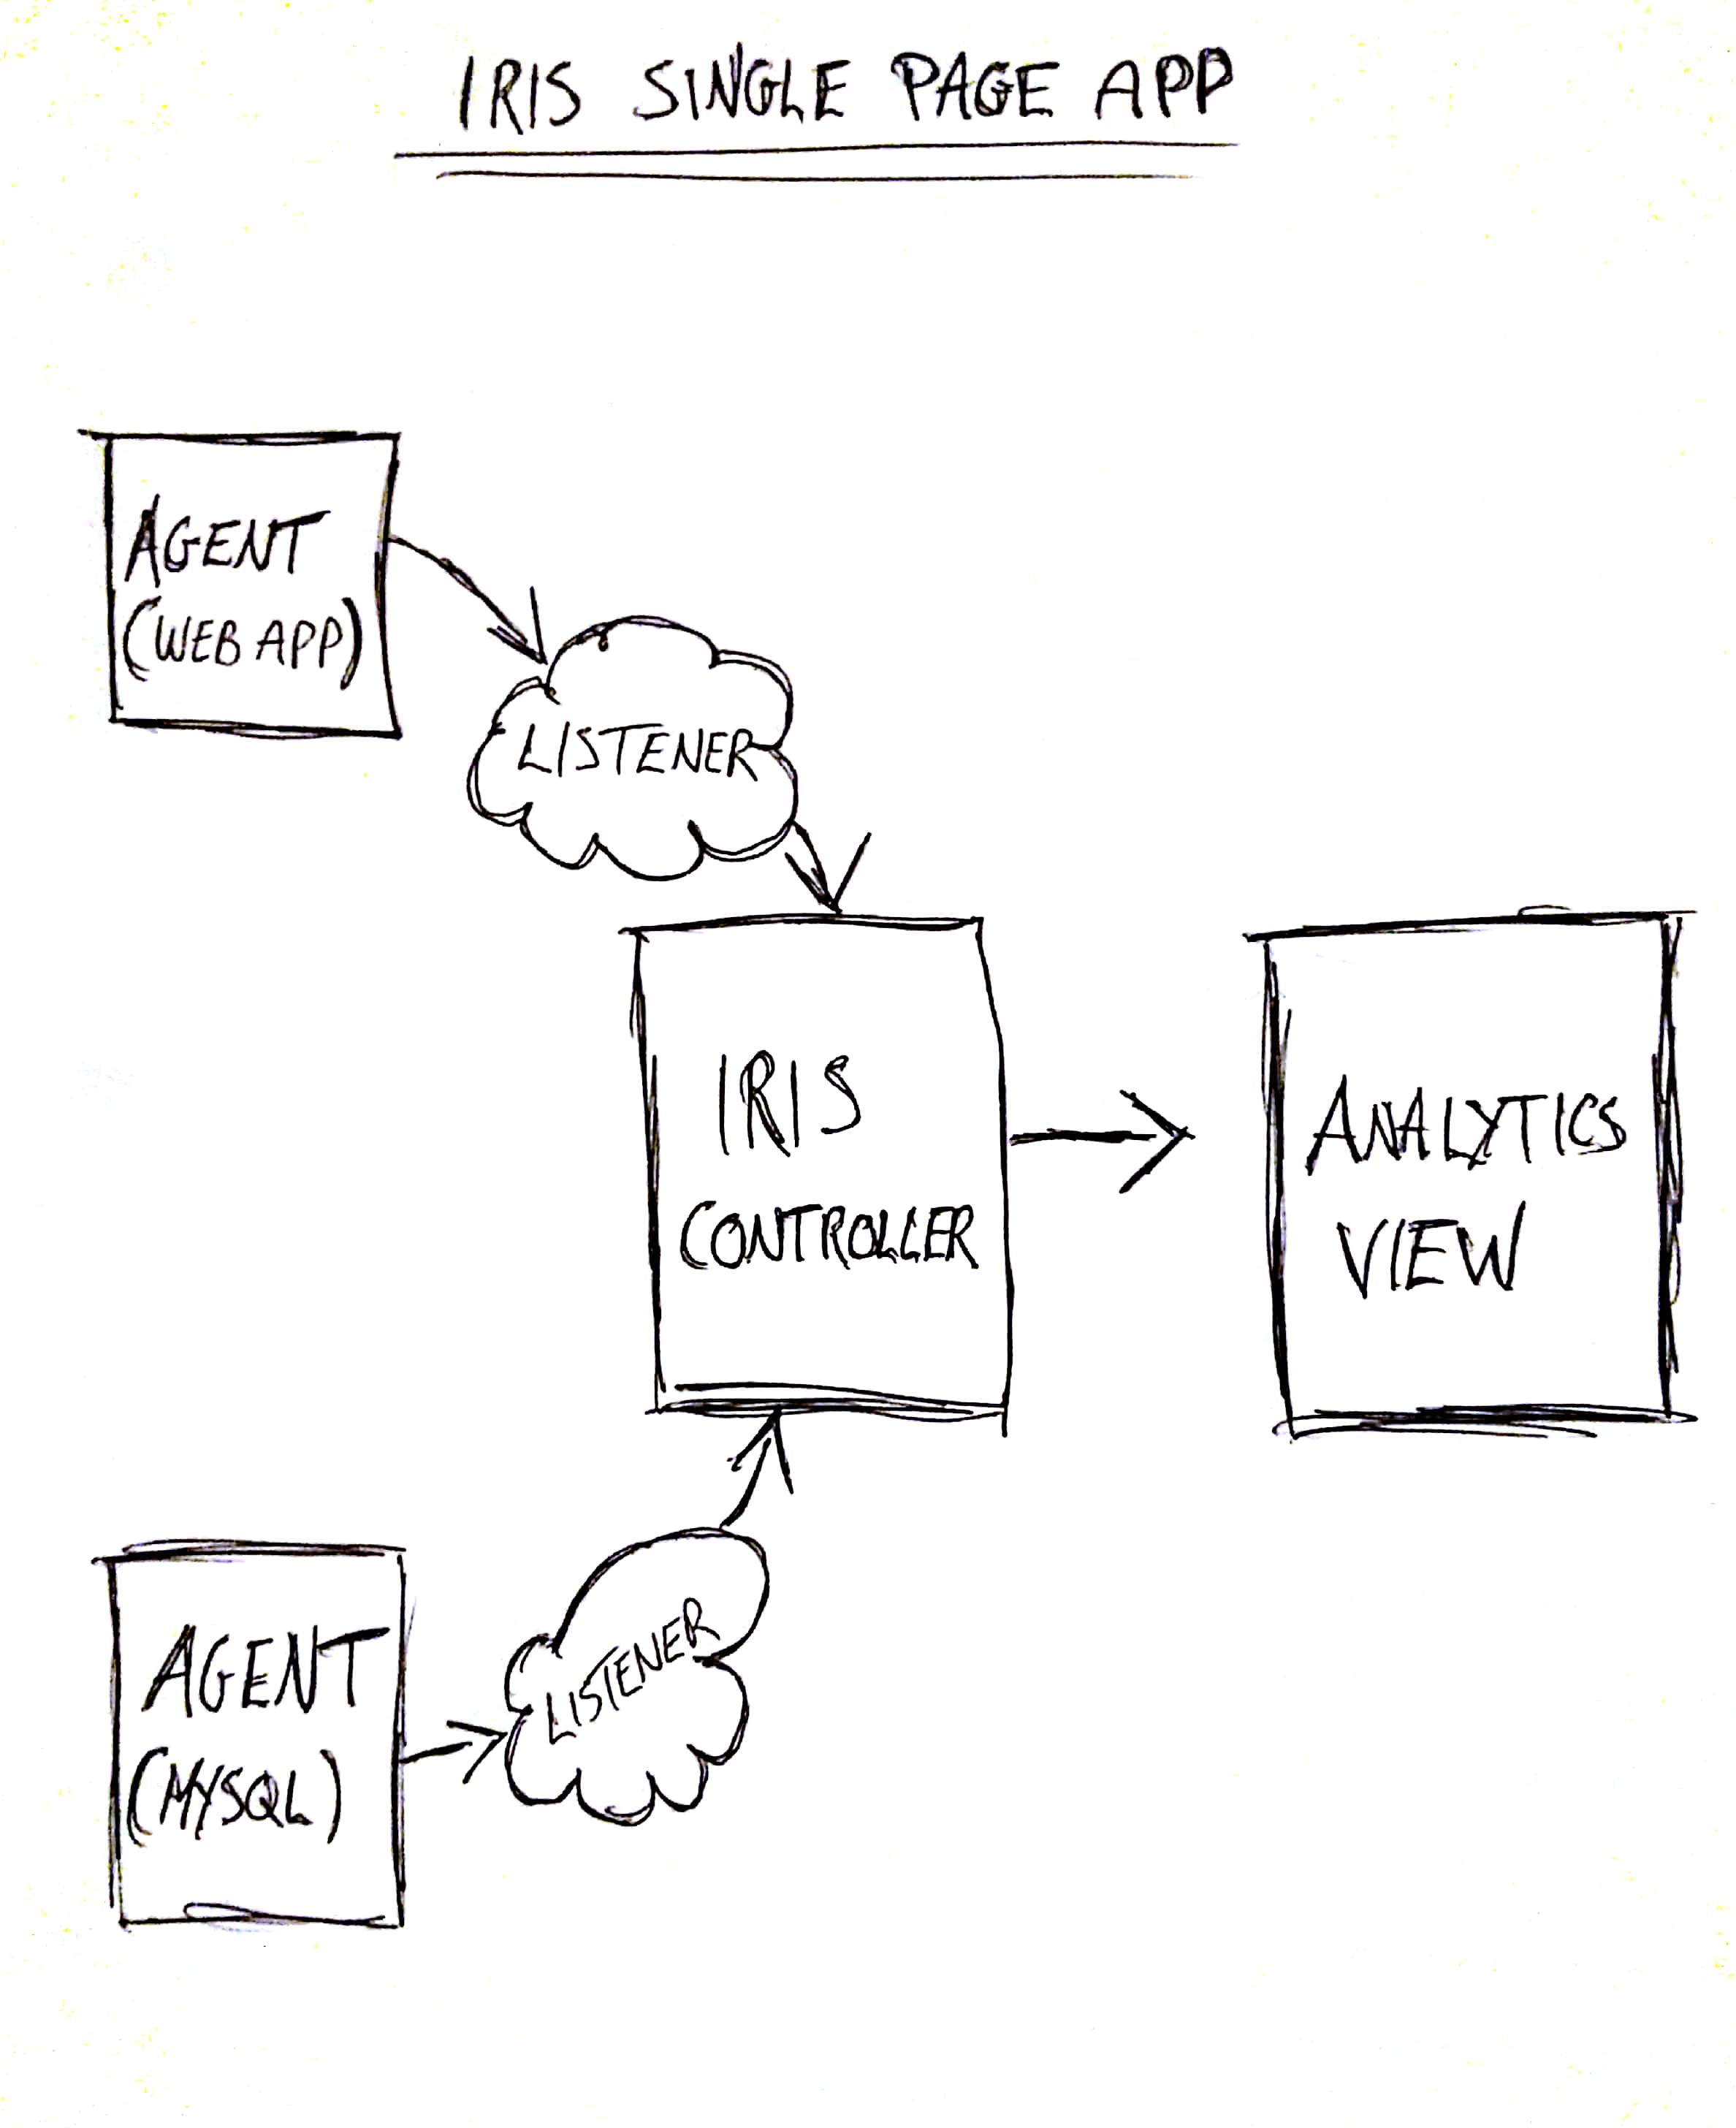 IRIS SINGLE PAGE APP
AGENT
(WEB APP)
LISTENER
IRIS
CONTROLLER
ANALYTICS
VIEW
LISTENER
AGENT
(MYSQL)